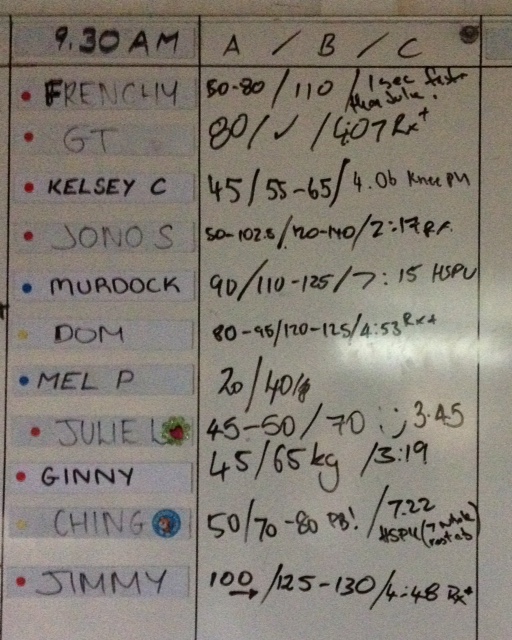 9.30 AM A / B / C
FRENCHY 50-80 / 110 / 1 sec faster
than Julie.
GT 80 / ✓ / 4:07 Rx+
KELSEY C 45 / 55-65 / 4.06 Knee PU
JONO S 50-102.5 / 120-140 / 2:17 RX
MURDOCK 90 / 110-125 / 7:15 HSPU
DOM 80-95 / 120-125 / 4:53 Rx+
MEL P 20 / 40
JULIE L 45-50 / 70 3.45
GINNY 45 / 65kg / 3:19
CHING 50 / 70-80 PB! / 7.22
HSPU
JIMMY 100 → / 125-130 / 4:48 Rx+